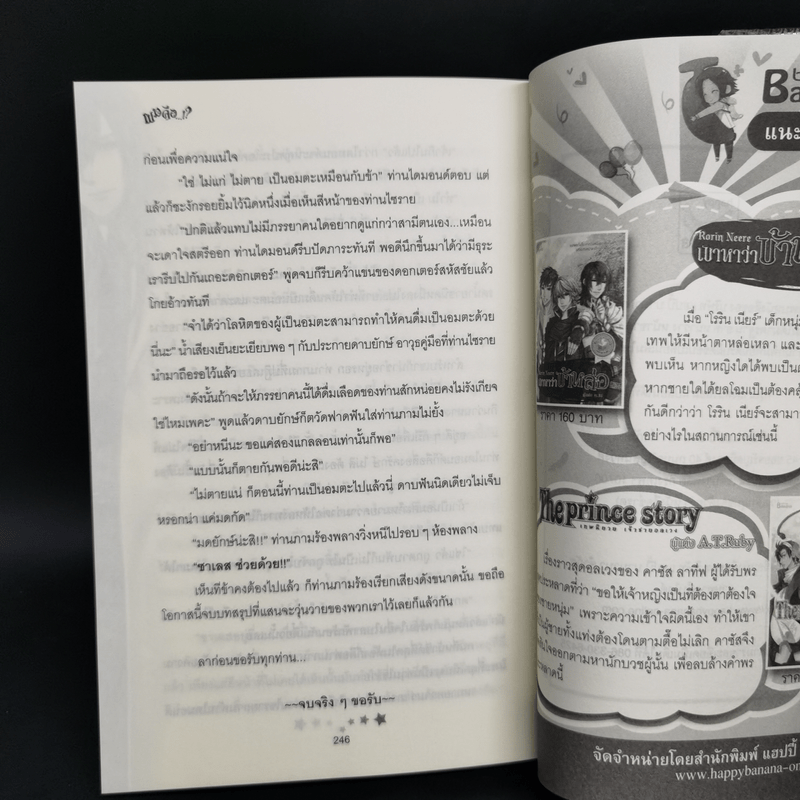 ก่อนเพื่อความแน่ใจ
"ใช่ ไม่แก่ ไม่ตาย เป็นอมตะเหมือนกับข้า" ท่านไดมอนด์ตอบ แต่
แล้วก็ชะงักรอยยิ้มไว้นิดหนึ่งเมื่อเห็นสีหน้าของท่านไซราย
"ปกติแล้วแทบไม่มีภรรยาคนใดอยากดูแก่กว่าสามีตนเอง...เหมือน
จะเดาใจสตรีออก ท่านไดมอนด์รีบปัดภาระทันที พอดีนึกขึ้นมาได้ว่ามีธุระ
เรารีบไปกันเถอะดอกเตอร์" พูดจบก็รีบคว้าแขนของดอกเตอร์สหัสชัยแล้ว
โกยอ้าวทันที
"จำได้ว่าโลหิตของผู้เป็นอมตะสามารถทำให้คนดื่มเป็นอมตะด้วย
นี่นะ" น้ำเสียงเย็นยะเยียบพอ ๆ กับประกายดาบยักษ์ อาวุธคู่มือที่ท่านไซราย
นำมาถือรอไว้แล้ว
"ดังนั้นถ้าจะให้ภรรยาคนนี้ได้ดื่มเลือดของท่านสักหน่อยคงไม่รังเกียจ
ใช่ไหมเพคะ" พูดแล้วดาบยักษ์ก็ตวัดฟาดฟันใส่ท่านภามไม่ยั้ง
"อย่าหนีนะ ขอแค่สองแกลลอนเท่านั้นก็พอ"
"แบบนั้นก็ตายกันพอดีน่ะสิ"
"ไม่ตายแน่ ก็ตอนนี้ท่านเป็นอมตะไปแล้วนี่ ดาบฟันนิดเดียวไม่เจ็บ
หรอกน่า แค่มดกัด"
"มดยักษ์น่ะสิ!!" ท่านภามร้องพลางวิ่งหนีไปรอบ ๆ ห้องพลาง
"ชาเลส ช่วยด้วย!!"
เห็นทีข้าคงต้องไปแล้ว ก็ท่านภามร้องเรียกเสียงดังขนาดนั้น ขอถือ
โอกาสนี้จบบทสรุปที่แสนจะวุ่นวายของพวกเราไว้เลยก็แล้วกัน
ลาก่อนขอรับทุกท่าน...
~~จบจริง ๆ ขอรับ~~
246
แนะ
Rorin Neere
เมื่อ "โรริน เนียร์" เด็กหนุ่ม
เทพให้มีหน้าตาหล่อเหลา และ
พบเห็น หากหญิงใดได้พบเป็น
หากชายใดได้ยลโฉมเป็นต้อง
กันดีกว่าว่า โรริน เนียร์จะสามาร
อย่างไรในสถานการณ์เช่นนี้
ราคา 160 บาท
The prince story
ผู้แต่ง A.T.Ruby
เรื่องราวสุดอลเวงของ คาซัส ลาทีฟ ผู้ได้รับพร
ประหลาดที่ว่า "ขอให้เจ้าหญิงเป็นที่ต้องตาต้องใจ
ชายหนุ่ม" เพราะความเข้าใจผิดนี้เอง ทำให้เขา
เป็นผู้ชายทั้งแท่งต้องโดนตามตื๊อไม่เลิก คาซัสจึง
ใจออกตามหานักบวชผู้นั้น เพื่อลบล้างคำพร
ลาดนี้
จัดจำหน่ายโดยสำนักพิมพ์ แฮปปี้
www.happybanana-on